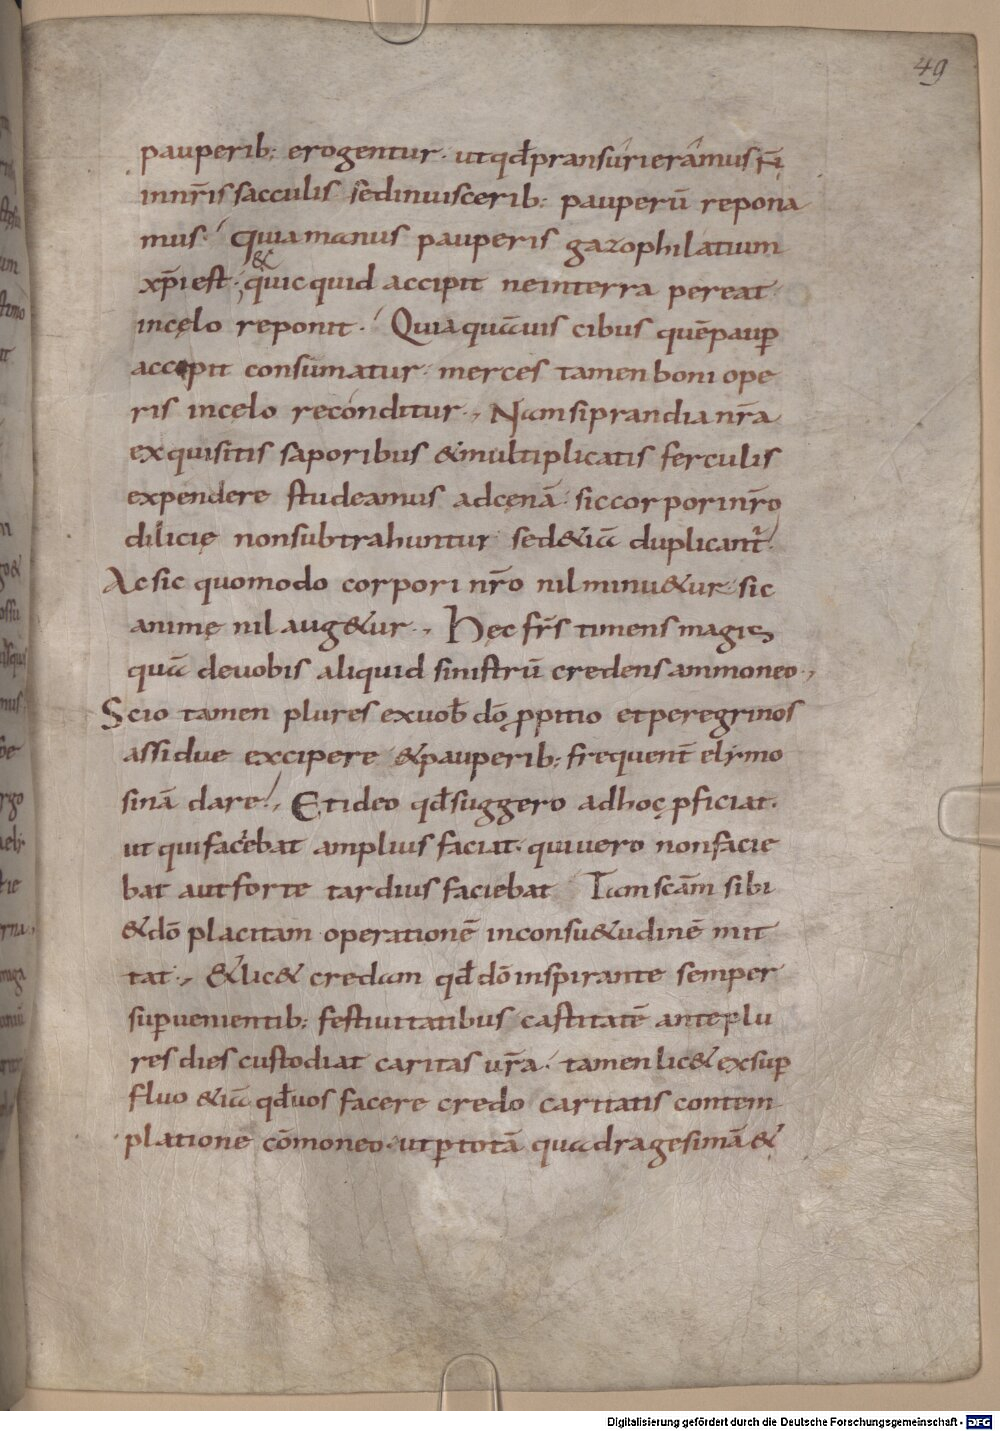 49
pauperib; erogentur· ut qđ pransuri eramus n̄
in nr̄is sacculis sed in uiscerib; pauperū repona
mus· Quia manus pauperis gazophilatium
xp̄i est· & quicquid accipit ne in terra pereat
in cęlo reponit· Quia quāuis cibus quē paup̄
accepit consumatur· merces tamen boni ope
ris in cęlo reconditur·, Nam si prandia nr̄a
exquisitis saporibus & multiplicatis ferculis
expendere studeamus ad cęnā· sic corpori nr̄o
dilicię non subtrahuntur sed &iā duplicant̄·
Ac sic quomodo corpori nr̄o nil minu&ur· sic
animę nil aug&ur·, Hęc fr̄s timens magis
quā de uobis aliquid sinistrū credens ammoneo·,
Scio tamen plures ex uob̄ dō p̄pitio et peregrinos
assidue excipere & pauperib; frequent̄ elymo
sinā dare!, Et ideo qđ suggero ad hoc p̄ficiat·
ut qui faciebat amplius faciat· qui uero non facie
bat aut forte tardius faciebat Tam scām sibi
& dō placitam operationē in consu&udinē mit
tat·, & lic& credam qđ dō inspirante semper
sup̄uenientib; festiuitatibus castitatē ante plu
res dies custodiat caritas ur̄a· tamen lic& ex sup̄
fluo &iā qđ uos facere credo caritatis contem
platione cōmoneo· ut p̄ totā quadragesimā &
Digitalisierung gefördert durch die Deutsche Forschungsgemeinschaft - DFG